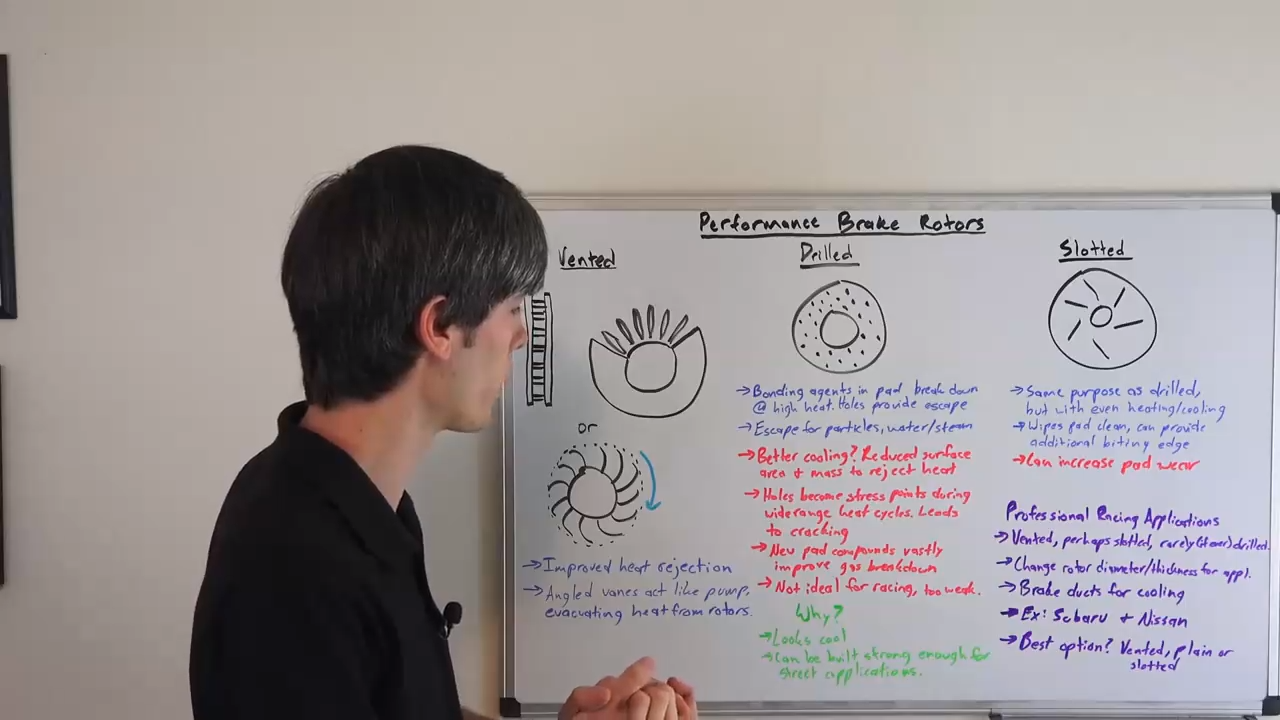 Performance Brake Rotors
Vented
or
→Improved heat rejection
→Angled vanes act like pump,
evacuating heat from rotors.
Drilled
→Bonding agents in pad break down
@ high heat. Holes provide escape
→Escape for particles, water/steam
→Better cooling? Reduced surface
area + mass to reject heat
→Holes become stress points during
wide range heat cycles. Leads
to cracking
→New pad compounds vastly
improve gas breakdown
→Not ideal for racing, too weak.
Why?
→Looks cool
→Can be built strong enough for
street applications.
Slotted
→Same purpose as drilled,
but with even heating/cooling
→Wipes pad clean, can provide
additional biting edge
→Can increase pad wear
Professional Racing Applications
→Vented, perhaps slotted, rarely (if ever) drilled.
→Change rotor diameter/thickness for appl.
→Brake ducts for cooling
→Ex: Subaru + Nissan
→Best option? Vented, plain or
slotted